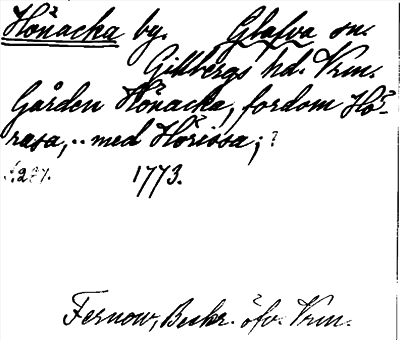 Hönacka by. Glafva sn.
Gillbergs hd. Vrm.
Gården Hönacka, fordom Hö-
rasa, .. med Hörissa; ?
s. 287. 1773.
Fernow, Beskr. öfv. Vrm.